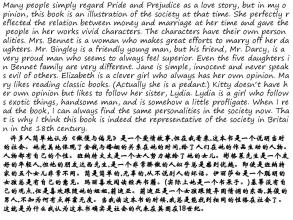 Many people simply regard Pride and Prejudice as a love story, but in my o
pinion, this book is an illustration of the society at that time. She perfectly r
eflected the relation between money and marriage at her time and gave the
people in her works vivid characters. The characters have their own person
alities. Mrs. Bennet is a woman who makes great efforts to marry off her da
ughters. Mr. Bingley is a friendly young man, but his friend, Mr. Darcy, is a
very proud man who seems to always feel superior. Even the five daughters i
n Bennet family are very different. Jane is simple, innocent and never speak
s evil of others. Elizabeth is a clever girl who always has her own opinion. Ma
ry likes reading classic books. (Actually she is a pedant.) Kitty doesn't have h
er own opinion but likes to follow her sister, Lydia. Lydia is a girl who follow
s exotic things, handsome man, and is somehow a little profligate. When I re
ad the book, I can always find the same personalities in the society now. Tha
t is why I think this book is indeed the representative of the society in Britai
n in the 18th century.
许多人简单地认为《傲慢与偏见》是一个爱情故事,但在我看来,这本书是一个说明当时
的社会。她完美地体现了金钱与婚姻的关系在她的时间,给了人们在她的作品生动的人物。
人物都有自己的个性。班纳特太太是一个女人努力为嫁给了她的女儿。彬格莱先生是一个友
好的年轻人,但他的朋友达西先生,是一个非常骄傲的人似乎总是感到优越。即使是班纳特
家的五个女儿非常不同。简是简单的,无辜的,从不说别人的坏话。伊丽莎白是一个聪明的
女孩总是有自己的意见。玛丽喜欢阅读经典书籍。(实际上她是一个书呆子。)基蒂没有自
己的观点,但是喜欢跟随她的妹妹,莉迪亚。莉迪亚是一个女孩跟随异国情调的东西,英俊
的男人,不知为何有点挥霍无度。当我读这本书的时候,我总是能找到相同的性格在社会了。
这就是为什么我认为这本书确实是社会的代表在英国在18世纪。